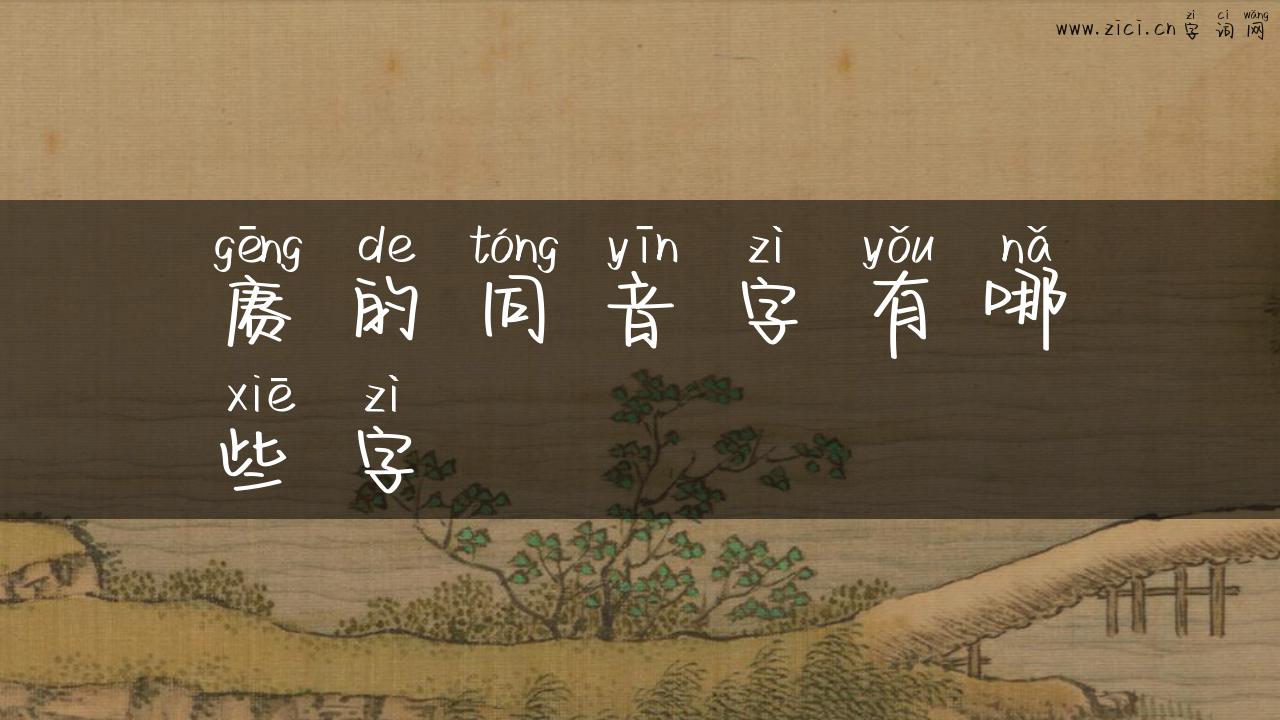 zì cí wǎng
www.zici.cn 字 词 网
gēng de tóng yīn zì yǒu nǎ
赓 的 同 音 字 有 哪
xiē zì
些 字